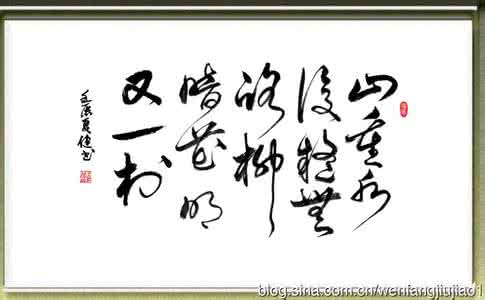 山重水
復疑無
路柳
暗花明
又一村
blog.sina.com.cn/wenfangjiujiao1